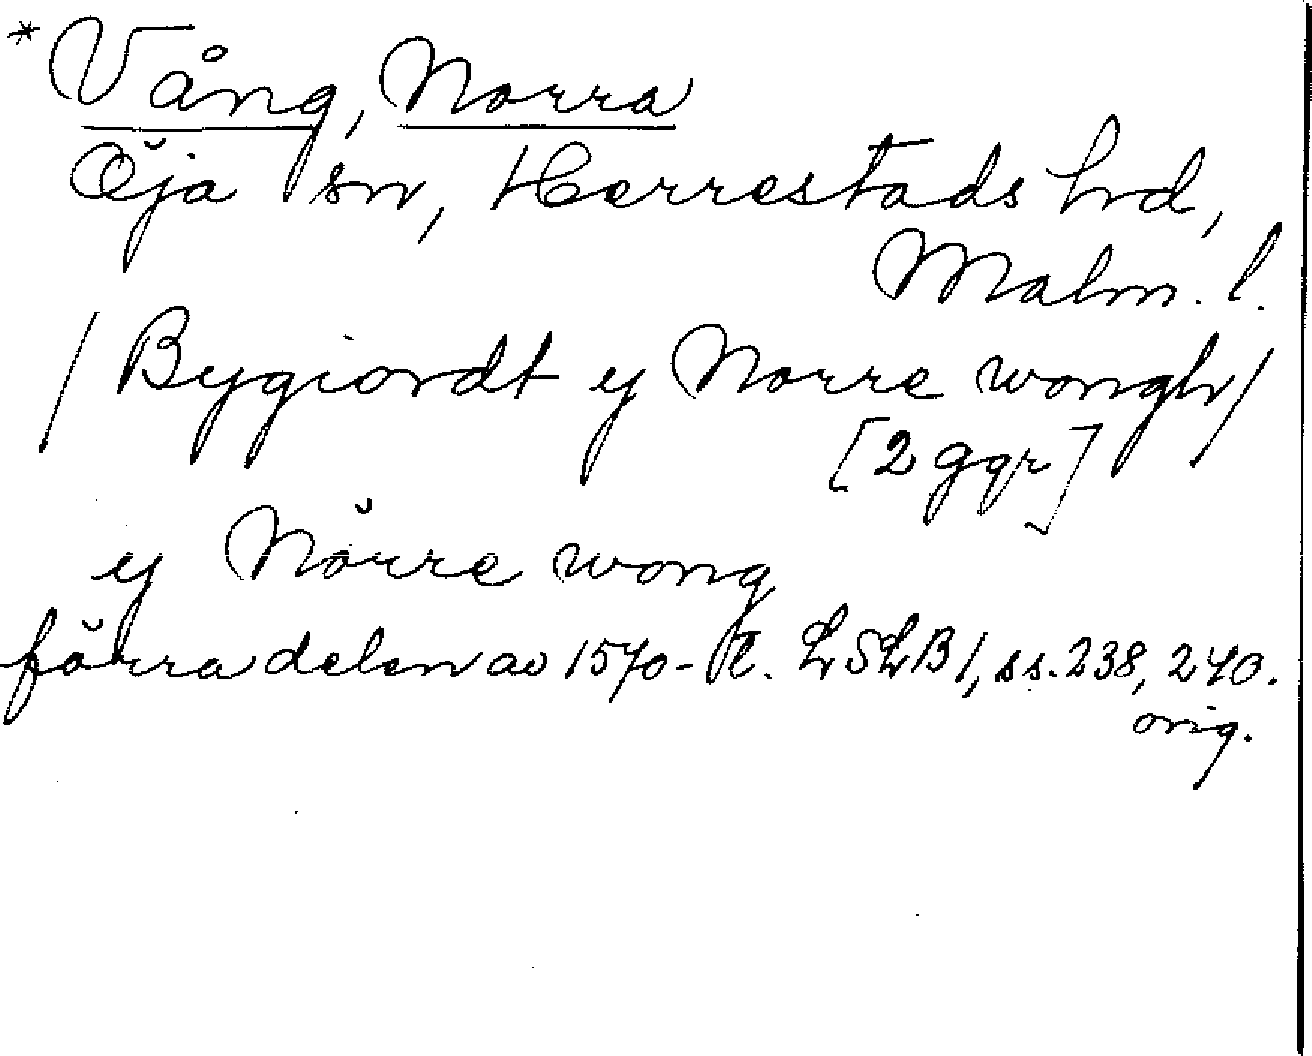 *Vång, Norra
Öja sn, Herrestads hrd,
Malm. l.
/ Bygiordt y Norre wongh /
[2 ggr]
y Nörre wong
förra delen av 1570-t. LSLB 1, ss. 238, 240.
orig.